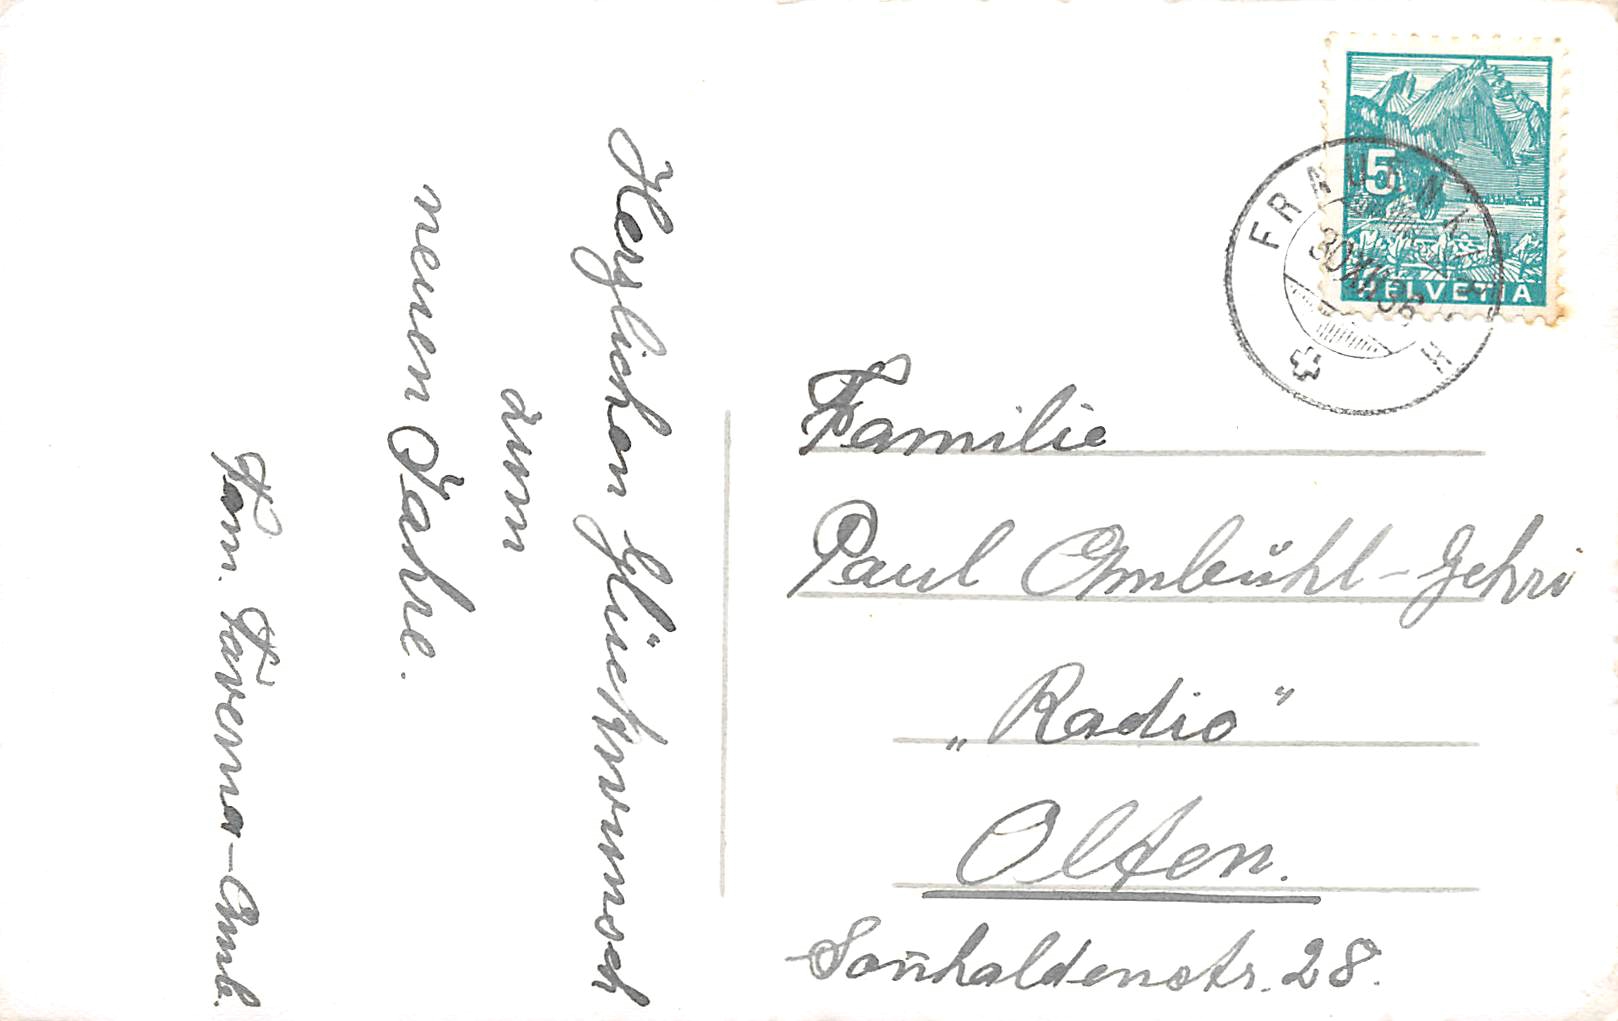 Herzlichen Glückwunsch
zum
neuen Jahre.
Fam. Taverna-Amb.
5
HELVETIA
FRAUENKIRCH
30.XII.36
Familie
Paul Ambühl-Gehri
„Radio"
Olten.
Sonnhaldenstr. 28.